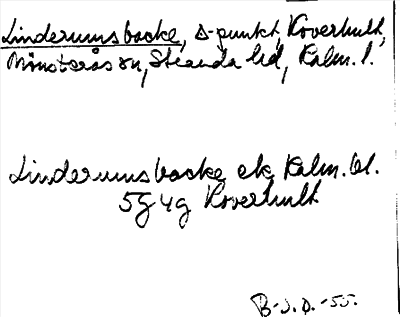 Linderumsbacke, Δ-punkt, Koverhult,
Mönsterås sn, Stranda hd, Kalm. l.
Linderumsbacke ek. Kalm. bl.
5G 4g Koverhult
B-J.D. -55.